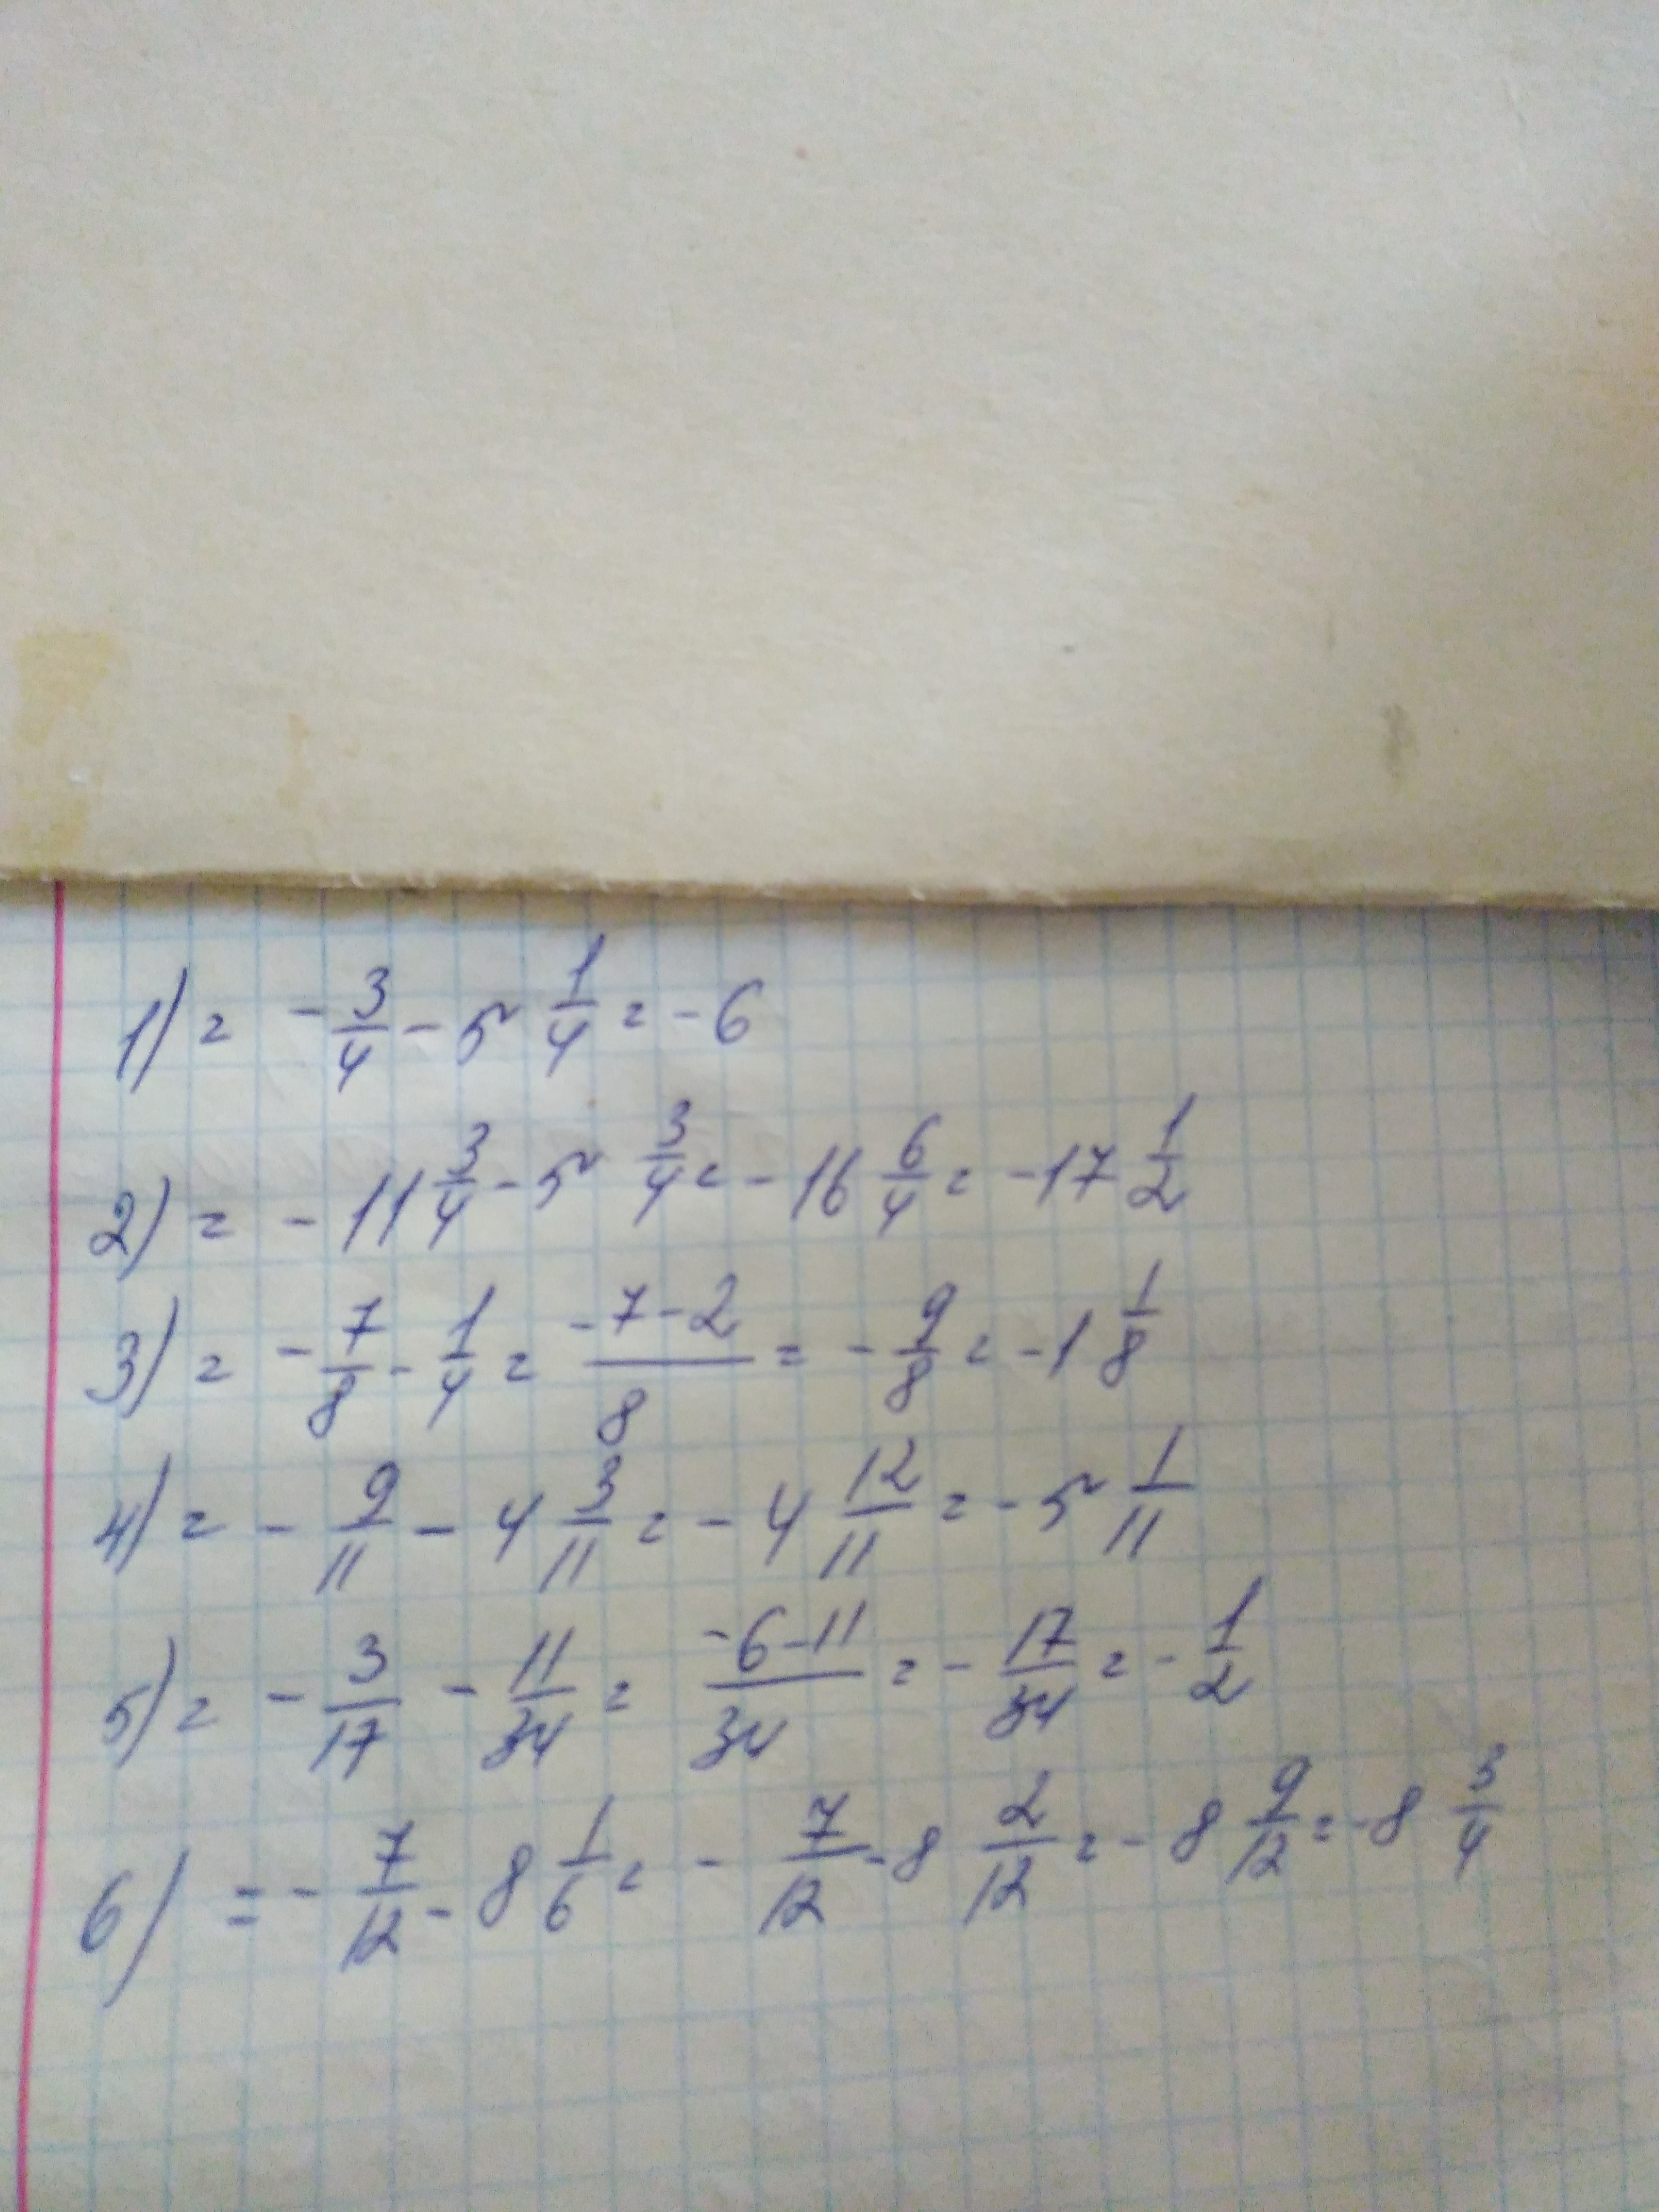 1) = - 3/4 - 5 1/4 = - 6
2) = - 11 3/4 - 5 3/4 = - 16 6/4 = - 17 1/2
3) = - 7/8 - 1/4 = -7-2/8 = - 9/8 = - 1 1/8
4) = - 9/11 - 4 3/11 = - 4 12/11 = - 5 1/11
5) = - 3/17 - 11/34 = -6-11/34 = - 17/34 = - 1/2
6) = - 7/12 - 8 1/6 = - 7/12 - 8 2/12 = - 8 9/12 = - 8 3/4